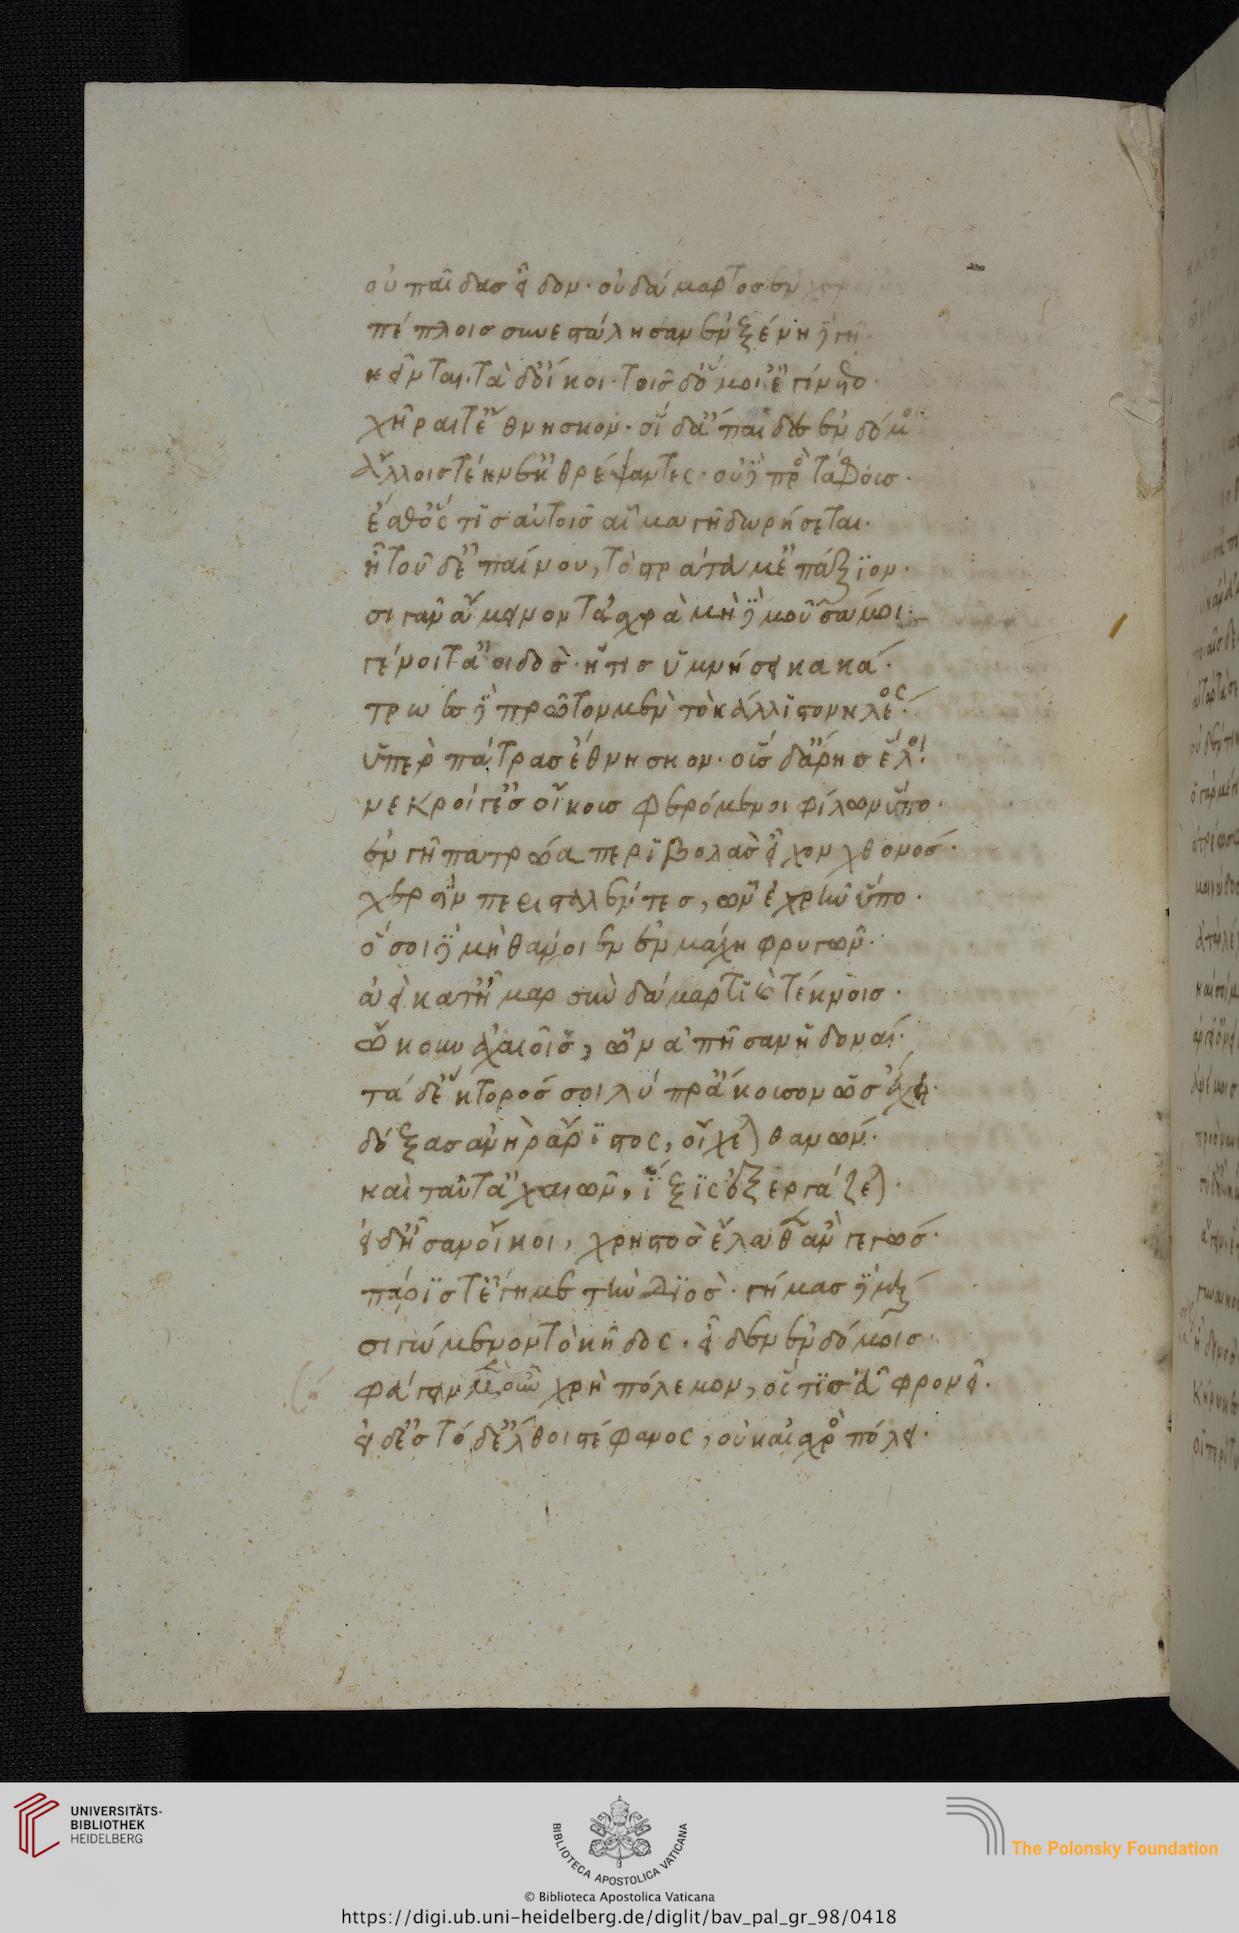 οὐ παῖδας εἶδον· οὐ δάμαρτος ἐν
πέπλοις συνεστάλησαν ἐν ξένη δὲ γῆ
κεῖνται. τὰ δ' οἴκοι· τοῖσδ' ὅμοι' ἐγίγνετο·
χῆραί τ' ἔθνησκον· οἱ δ' ἄπαιδες ἐν δόμοις
ἄλλοις τέκν' ἐκθρέψαντες· οὐδὲ πρὸς τάφοις·
ἔσθ' ὅστις αὐτοῖς αἷμα γῆ δωρήσεται·
ἢ τοῦδ' ἐπαίνου, τὸ στράτευμ' ἐπάξιον·
σιγᾶν ἄμεινον τἀισχρὰ μὴ δὲ μοῦσά μοι·
γένοιτ' ἀοιδὸς· ἥτις ὑμνήσει κακά·
τρῶες δὲ πρῶτον μὲν τὸ κάλλιστον κλέος·
ὑπὲρ πάτρας ἔθνησκον· οὓς δ' ἄρης ἕλοι
νεκροί γ' ἐς οἴκους φερόμενοι φίλων ὕπο·
ἐν γῆ πατρώα περιβολὰς εἶχον χθονός·
χερσὶν περισταλέντες, ὧν ἐχρῆν ὕπο·
ὅσοι δὲ μὴ θάνοιεν ἐν μάχη φρυγῶν·
ἀεὶ κατ' ἦμαρ σὺν δάμαρτι καὶ τέκνοις·
ὤκουν ἀχαιοῖς, ὧν ἀπῆσαν ἡδοναί·
τὰ δ' ἕκτορός σοι λύπρ' ἄκουσον ὡς ἔχει·
δόξας ἀνὴρ ἄριστος, οἴχεται θανών·
καὶ ταῦτ' ἀχαιῶν, ἵξις ἐξεργάζεται·
εἰ δ' ἦσαν οἴκοι, χρηστὸς ἔλαθ' ἂν γεγώς·
πάρις τ' ἔγημε τὴν διὸς· γήμας δὲ μὴ
σιγώμενον τὸ κῆδος· εἶδεν ἐν δόμοις·
φεύγειν μὲν οὖν χρὴ πόλεμον, ὅστις εὖ φρονεῖ·
εἰ δ' ἐς τόδ' ἔλθοι στέφανος, οὐκ αἰσχρὸς πόλει·
UNIVERSITÄTS-
BIBLIOTHEK
HEIDELBERG
BIBLIOTECA APOSTOLICA VATICANA
The Polonsky Foundation
© Biblioteca Apostolica Vaticana
https://digi.ub.uni-heidelberg.de/diglit/bav_pal_gr_98/0418